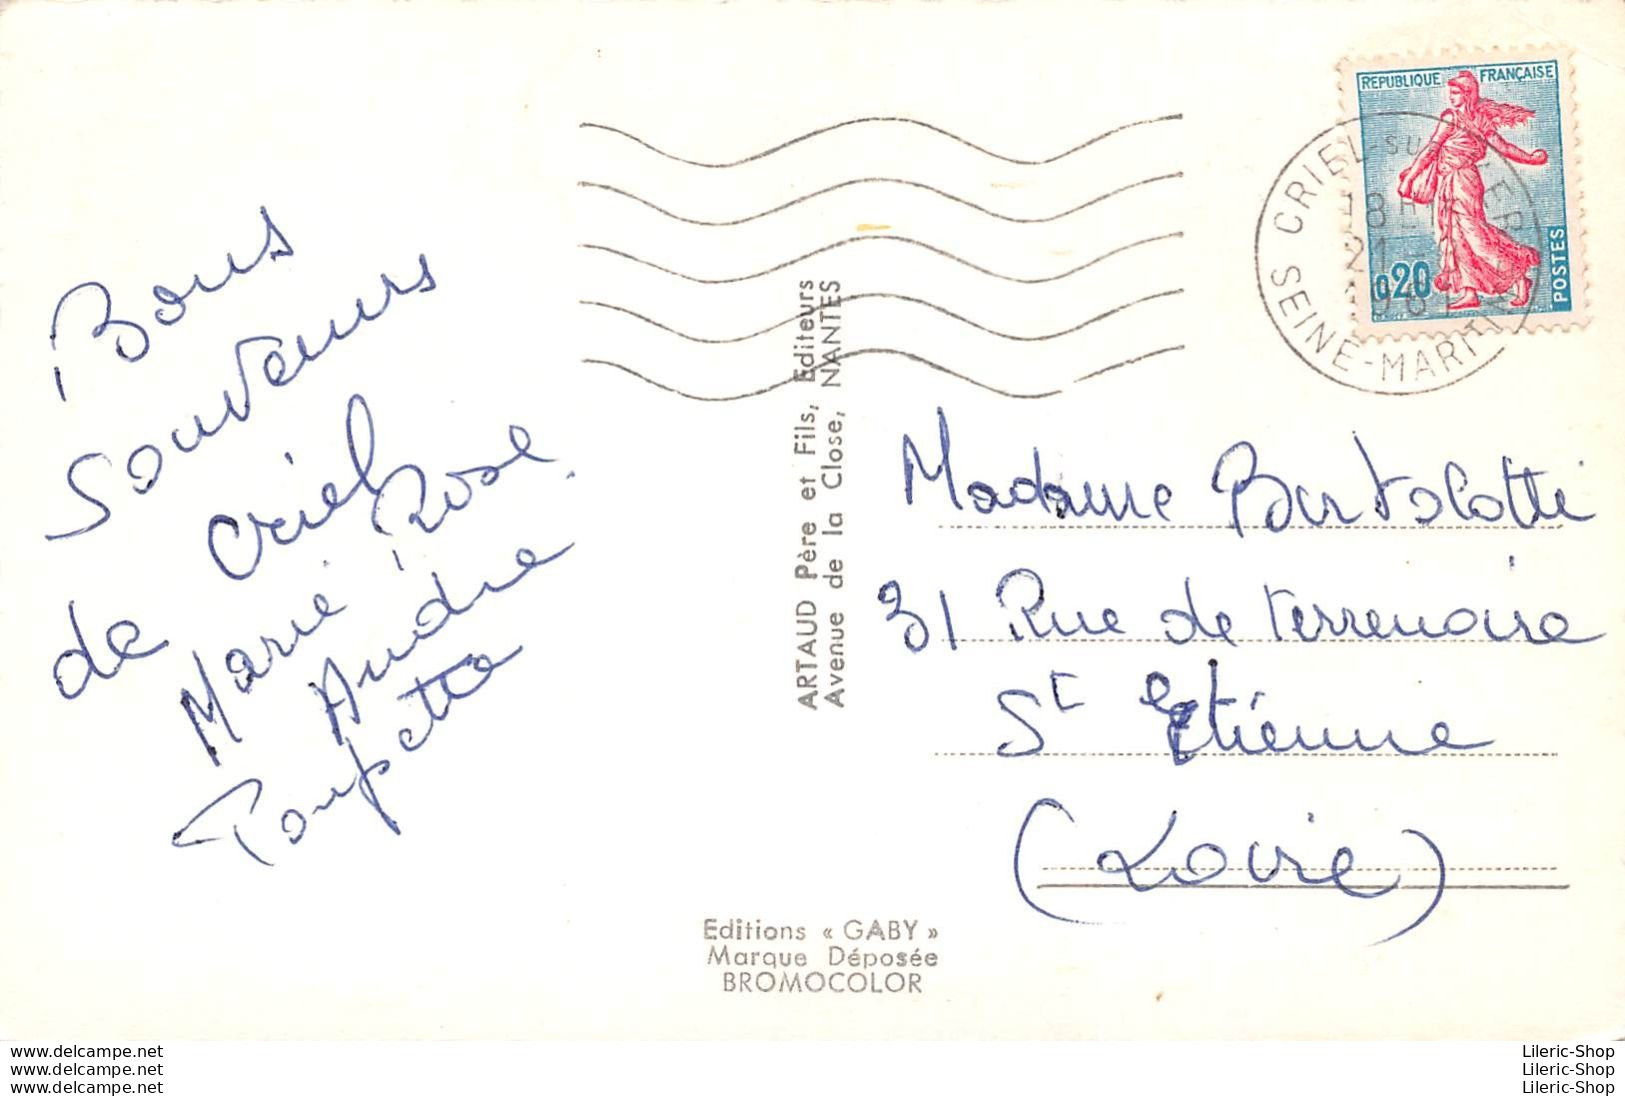 Bons
souvenirs
de Criel
Marie Rose
Andrée
Poupette
ARTAUD Père et Fils, Editeurs
Avenue de la Close, NANTES
Editions « GABY »
Marque Déposée
BROMOCOLOR
REPUBLIQUE FRANÇAISE
0,20
POSTES
CRIEL-SUR-MER
18 H
21
SEINE-MARITIME
Madame Bartolotti
31 Rue de Terrenoire
St Etienne
(Loire)
www.delcampe.net
www.delcampe.net
www.delcampe.net
Lileric-Shop
Lileric-Shop
Lileric-Shop